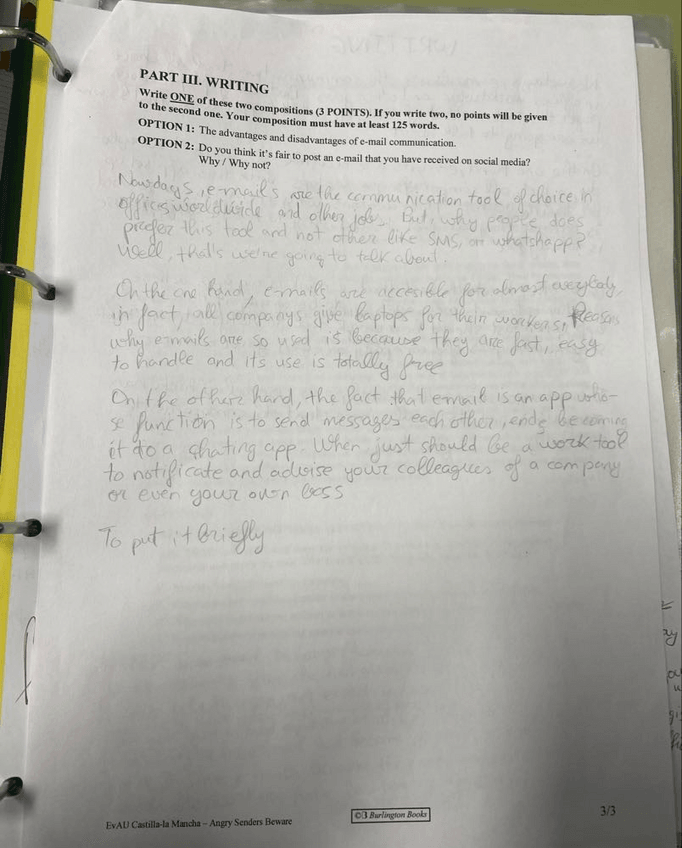 PART III. WRITING
Write ONE of these two compositions (3 POINTS). If you write two, no points will be given
to the second one. Your composition must have at least 125 words.
OPTION 1: The advantages and disadvantages of e-mail communication.
OPTION 2: Do you think it's fair to post an e-mail that you have received on social media?
Why / Why not?
Nowdays, e-mails are the communication tool of choice in
offices worldwide and other jobs. But, why people does
prefer this tool and not other like SMS, or whatshapp?
Well, that's we're going to talk about.
On the one hand, e-mails are accesible for almost everybody,
in fact, all companys give laptops for their workers, Reason
why e-mails are so used is because they are fast, easy
to handle and its use is totally free
On the other hand, the fact that email is an app who-
se function is to send messages each other, ends becoming
it to a chating app. When just should be a work tool
to notificate and advise your colleagues of a company
or even your own boss
To put it briefly
EvAU Castilla-la Mancha – Angry Senders Beware
© Burlington Books
3/3